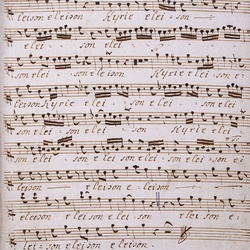 leison eleison. Kyrie elei-son
elei-son elei-son e
son elei-son eleison Kyrie elei
leison Kyrie elei-son elei-son e
son elei-son elei-son Kyrie e
son elei-son elei-son elei-son elei
leison eleison e-leison
eleison eleison elei-son eleison e
lei-son eleison elei-son